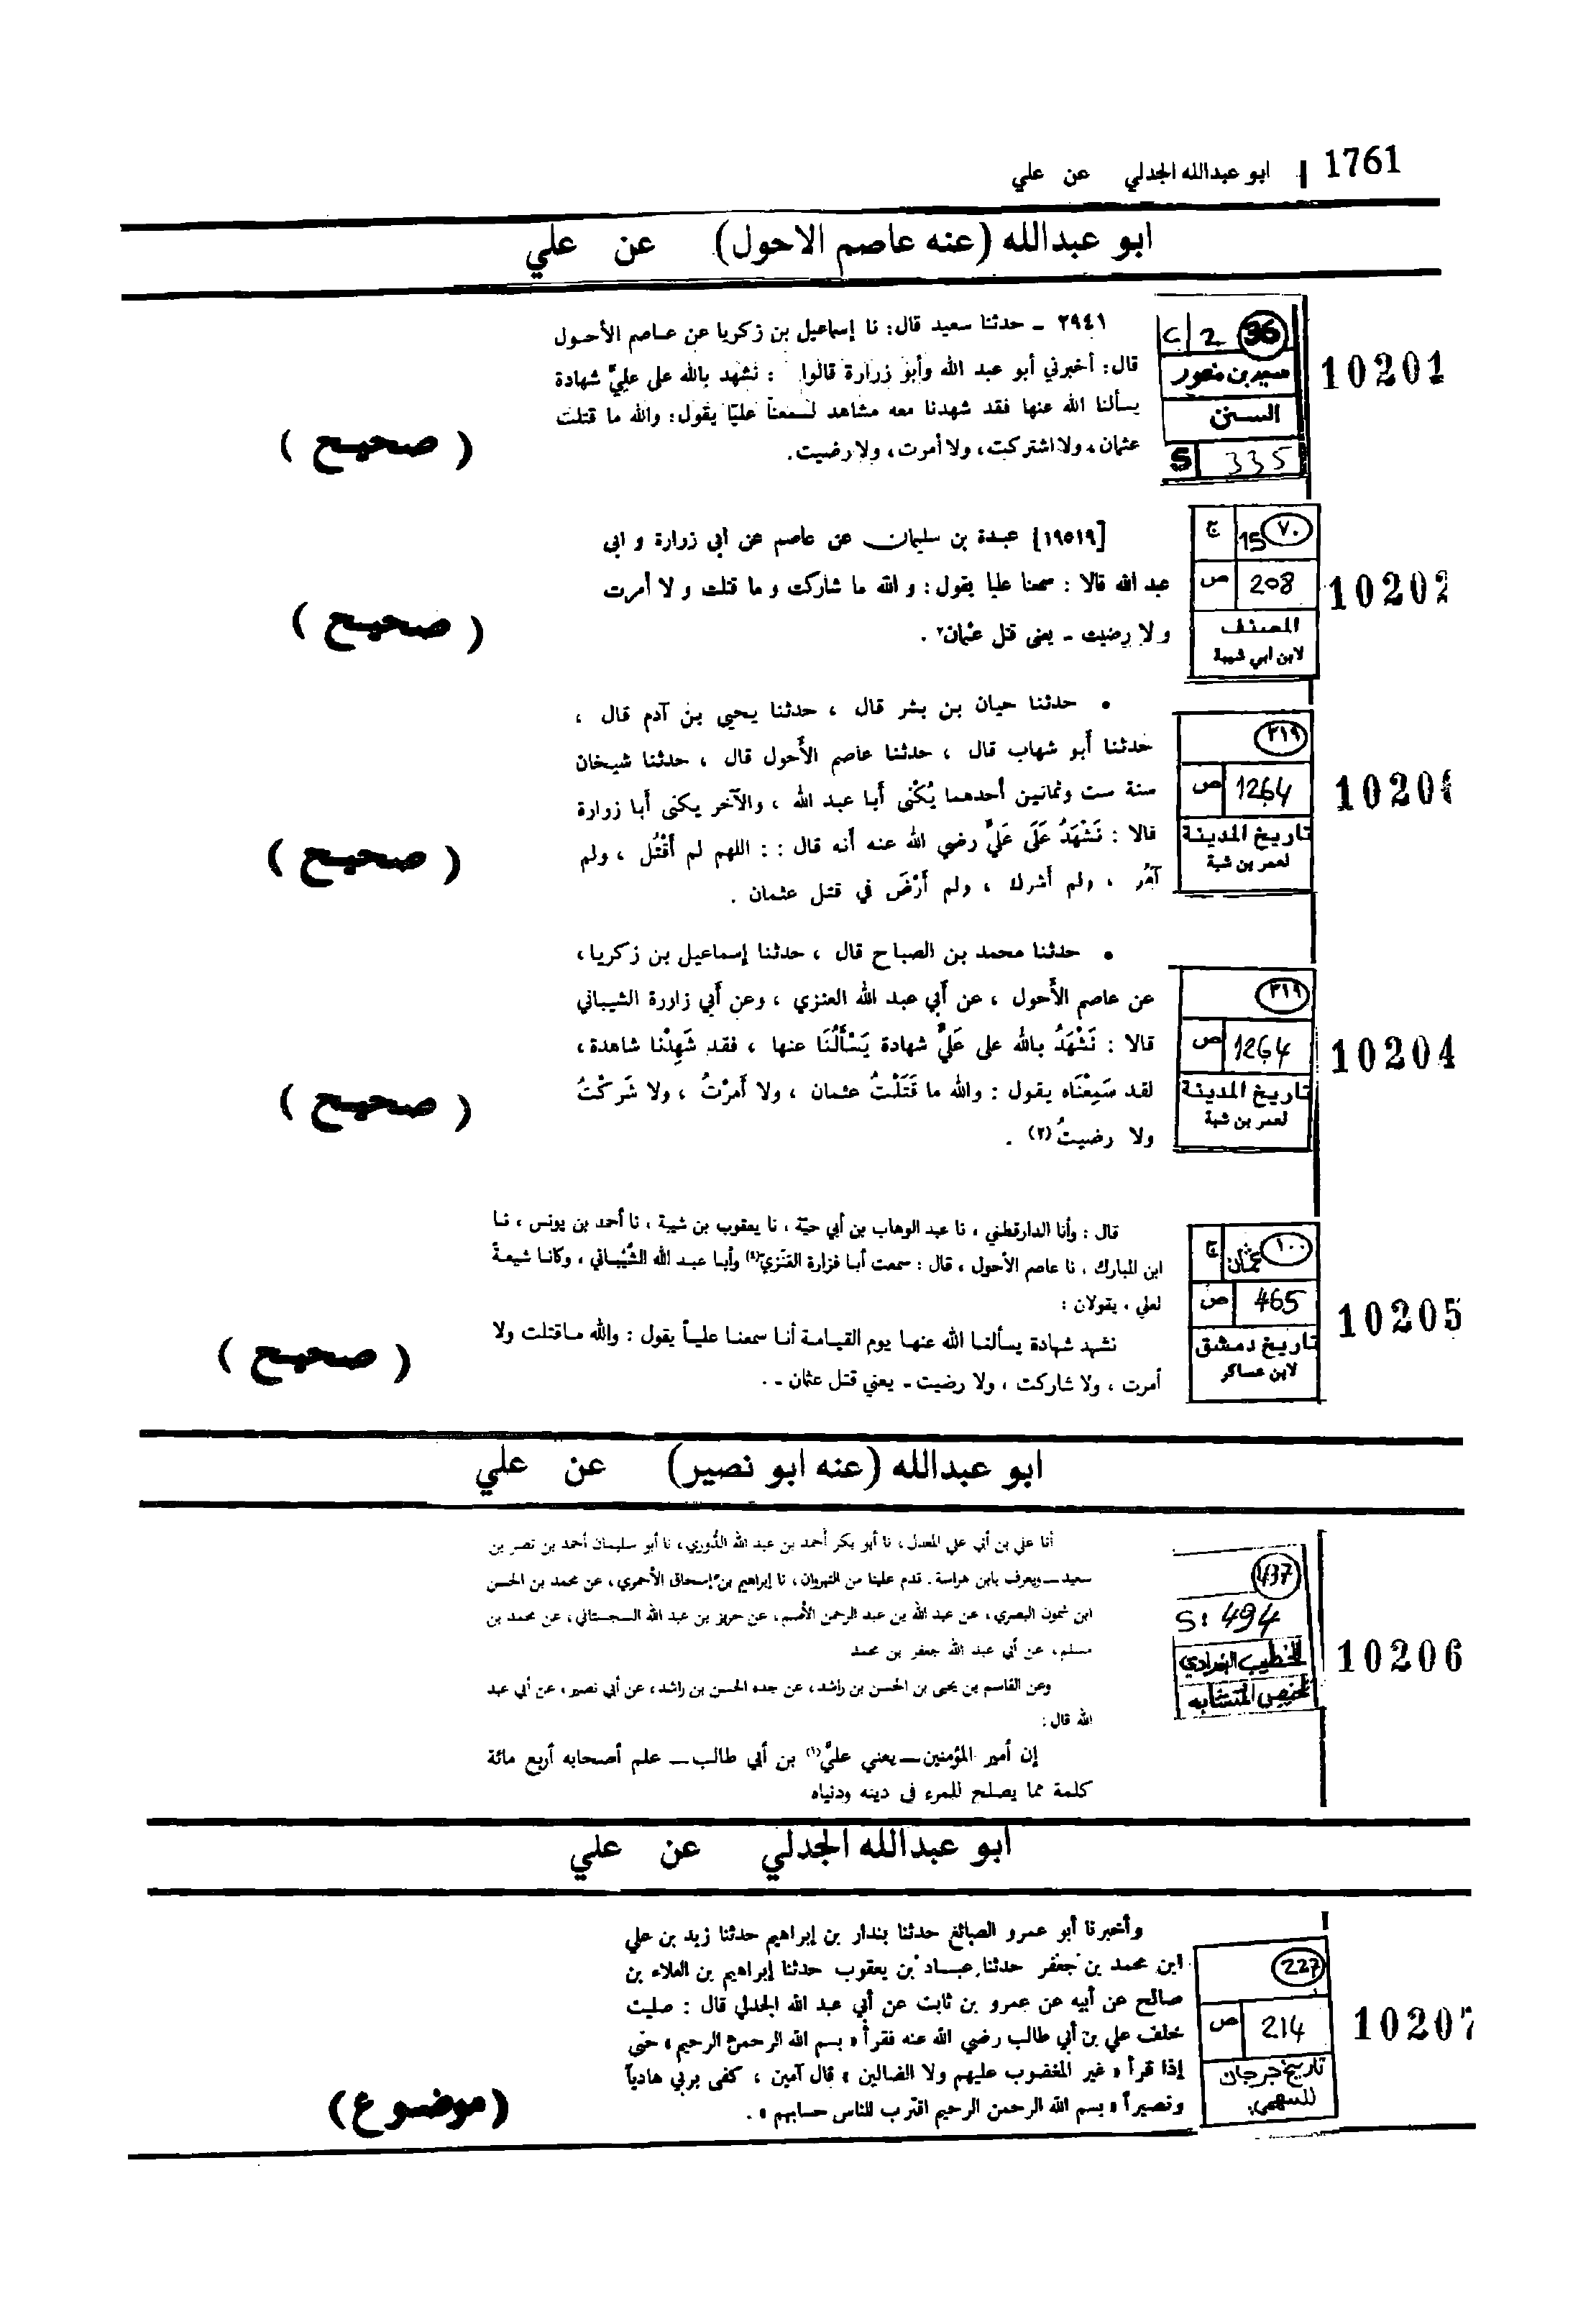 1761 | ابو عبدالله الجدلي عن علي
ابو عبدالله (عنه عاصم الاحول) عن علي
36 2 C
سعيد بن منصور
السنن
335 S
10201
٢٩٤١ ـ حدثنا سعيد قال: نا إسماعيل بن زكريا عن عاصم الأحول
قال: أخبرني أبو عبد الله وأبو زرارة قالوا : نشهد بالله على عليّ شهادة
يسألنا الله عنها فقد شهدنا معه مشاهد لسمعنا عليّا يقول: والله ما قتلت
عثمان، ولا اشتركت، ولا أمرت، ولا رضيت.
( صحيح )
٧٠ 15 ج
208 ص
المصنف
لابن ابي شيبة
10202
[١٩٥١٩] عبدة بن سليمان عن عاصم عن ابي زرارة و ابى
عبد الله قالا : سمعنا عليا يقول : و الله ما شاركت و ما قتلت و لا أمرت
و لا رضيت ـ يعنى قتل عثمان٢ .
( صحيح )
٣١٩
1264 ص
تاريخ المدينة
لعمر بن شبة
1020
• حدثنا حيان بن بشر قال ، حدثنا يحيي بن آدم قال ،
حدثنا أَبو شهاب قال ، حدثنا عاصم الأَحول قال ، حدثنا شيخان
سنة ست وثمانين أحدهما يُكْنى أَبا عبد الله ، والآخر يكنى أبا زوارة
قالا : نَشْهَدُ عَلَى عَليٍّ رضي الله عنه أَنه قال : : اللهم لم أَقْتُل ، ولم
آمُر ، ولم أَشرك ، ولم أَرْضَ في قتل عثمان .
( صحيح )
٣١٩
1264 ص
تاريخ المدينة
لعمر بن شبة
10204
• حدثنا محمد بن الصباح قال ، حدثنا إسماعيل بن زكريا ،
عن عاصم الأَحول ، عن أَبي عبد الله العنزي ، وعن أَبي زاررة الشيباني
قالا : نَشْهَدُ بالله على عَليٍّ شهادة يَسْأَلُنَا عنها ، فقد شَهِدْنا شاهدة ،
لقد سَمِعْنَاه يقول : والله ما قَتَلْتُ عثمان ، ولا أَمرْتُ ، ولا شَركْتُ
ولا رضيتُ (٢) .
( صحيح )
١٠٠ عثمان ج
465 ص
تاريخ دمشق
لابن عساكر
10205
قال : وأنا الدارقطني ، نا عبد الوهاب بن أبي حيّة ، نا يعقوب بن شيبة ، نا أحمد بن يونس ، نا
ابن المبارك ، نا عاصم الأحول ، قال : سمعت أبا فزارة العَنَزيّ(٤) وأبا عبد الله الشَّيْباني ، وكانا شيعةً
لعلي ، يقولان :
نشهد شهادة يسألنا الله عنها يوم القيامة أنا سمعنا علياً يقول : والله ماقتلت ولا
أمرت ، ولا شاركت ، ولا رضيت ـ يعني قتل عثمان ـ .
( صحيح )
ابو عبدالله (عنه ابو نصير) عن علي
437
S: 494
الخطيب البغدادي
تلخيص المتشابه
10206
أنا علي بن أبي علي المعدل، نا أبو بكر أحمد بن عبد الله الدُّوري، نا أبو سليمان أحمد بن نصر بن
سعيد ــ ويعرف بابن هراسة. قدم علينا من النهروان، نا إبراهيم بن إسحاق الأحمري، عن محمد بن الحسن
ابن شمون البصري، عن عبد الله بن عبد الرحمن الأصم، عن حريز بن عبد الله السجستاني، عن محمد بن
مسلم، عن أبي عبد الله جعفر بن محمد
وعن القاسم بن يحيى بن الحسن بن راشد، عن جده الحسن بن راشد، عن أبي نصير، عن أبي عبد
الله قال:
إن أمير المؤمنين ــ يعني عليّ(١) بن أبي طالب ــ علم أصحابه أربع مائة
كلمة مما يصلح للمرء فى دينه ودنياه
ابو عبدالله الجدلي عن علي
227
214 ص
تاريخ جرجان
للسهمي
10207
وأخبرنا أبو عمرو الصائغ حدثنا بندار بن إبراهيم حدثنا زيد بن علي
ابن محمد بن جعفر حدثنا عباد بن يعقوب حدثنا إبراهيم بن العلاء بن
صالح عن أبيه عن عمرو بن ثابت عن أبي عبد الله الجدلي قال : صليت
خلف علي بن أبي طالب رضي الله عنه فقرأ « بسم الله الرحمن الرحيم » حتى
إذا قرأ « غير المغضوب عليهم ولا الضالين » قال آمين ، كفى بربي هادياً
ونصيراً « بسم الله الرحمن الرحيم اقترب للناس حسابهم » .
(موضوع)